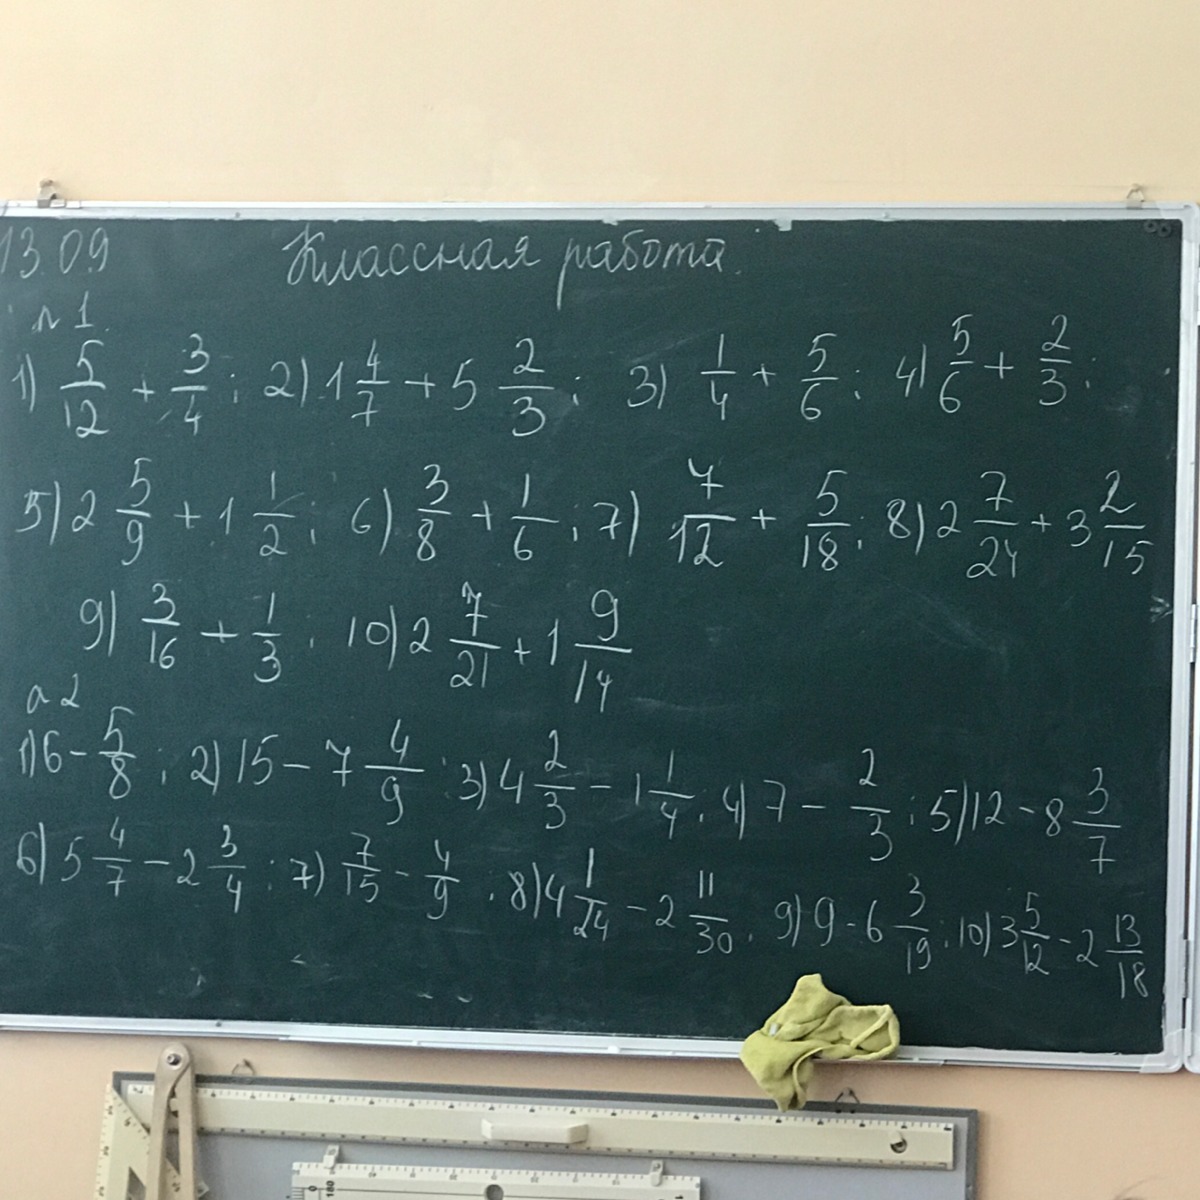 13.09 Классная работа.
№ 1.
1) 5/12 + 3/4 ; 2) 1 4/7 + 5 2/3 ; 3) 1/4 + 5/6 ; 4) 5/6 + 2/3 ;
5) 2 5/9 + 1 1/2 ; 6) 3/8 + 1/6 ; 7) 7/12 + 5/18 ; 8) 2 7/24 + 3 2/15
9) 3/16 + 1/3 . 10) 2 7/21 + 1 9/14
№ 2
1) 6 - 5/8 ; 2) 15 - 7 4/9 ; 3) 4 2/3 - 1 1/4 ; 4) 7 - 2/3 ; 5) 12 - 8 3/7
6) 5 4/7 - 2 3/4 ; 7) 7/15 - 4/9 ; 8) 4 1/24 - 2 11/30 . 9) 9 - 6 3/19 ; 10) 3 5/12 - 2 13/18
180